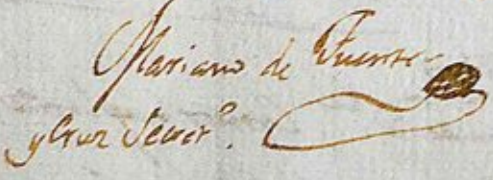 Mariano de Fuentes
y Cruz Secret.º